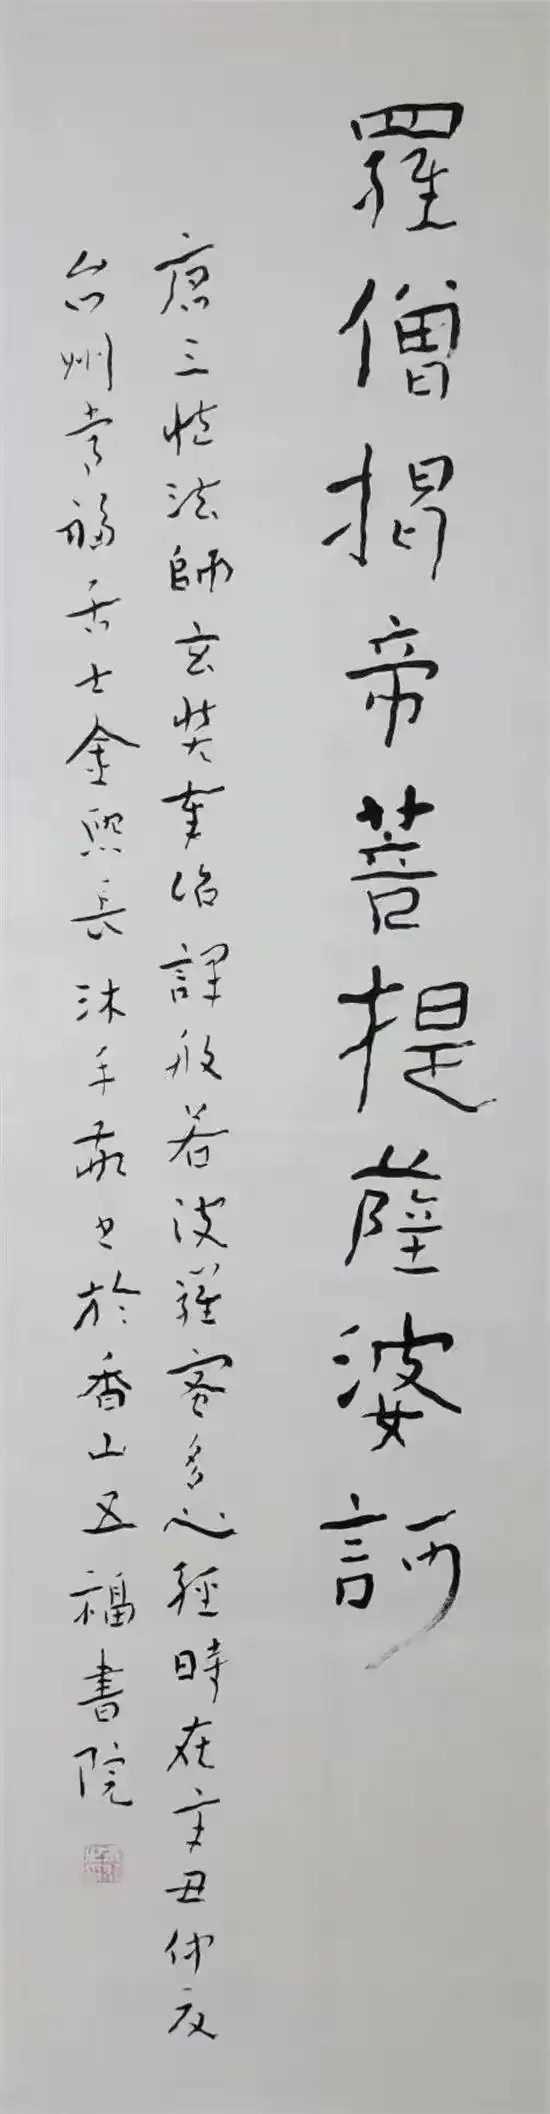 羅僧揭帝菩提薩婆訶
唐三藏法師玄奘奉詔譯般若波羅蜜多心經時在辛丑仲夏
台州常福居士金熙長沐手敬书於香山五福書院